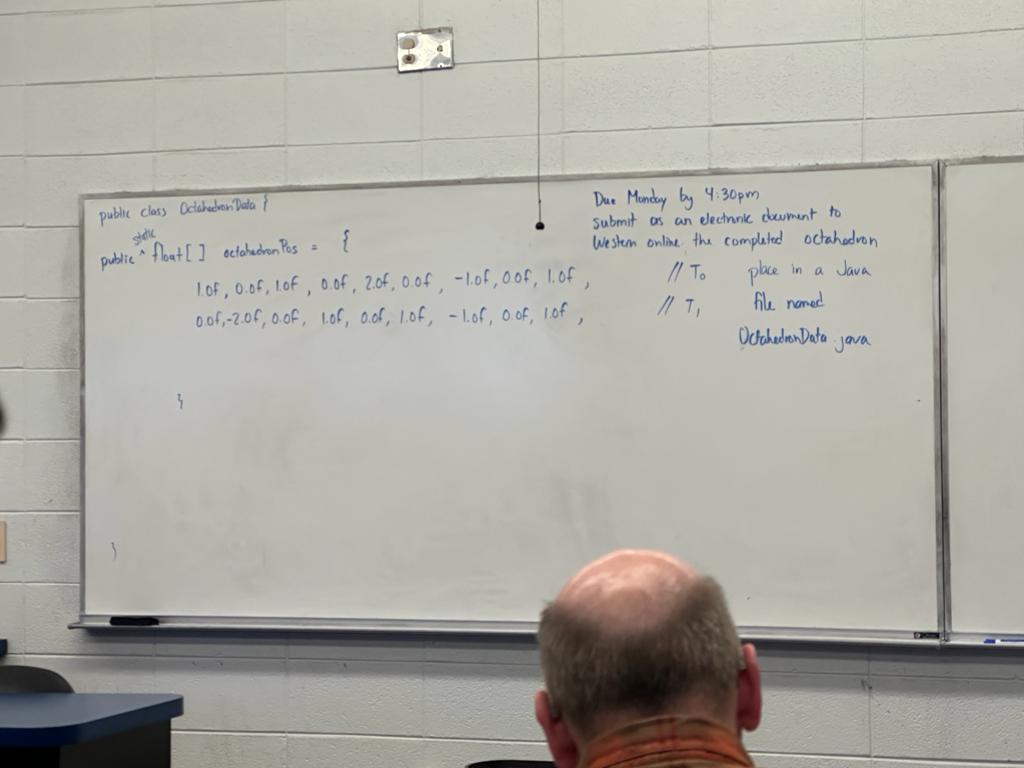 public class OctahedronData {
public ^ static float[] octahedronPos = {
1.0f, 0.0f, 1.0f, 0.0f, 2.0f, 0.0f, -1.0f, 0.0f, 1.0f, // T0
0.0f, -2.0f, 0.0f, 1.0f, 0.0f, 1.0f, -1.0f, 0.0f, 1.0f, // T1
}
}
Due Monday by 4:30pm
submit as an electronic document to
Western online. the completed octahedron
place in a Java
file named
OctahedronData.java